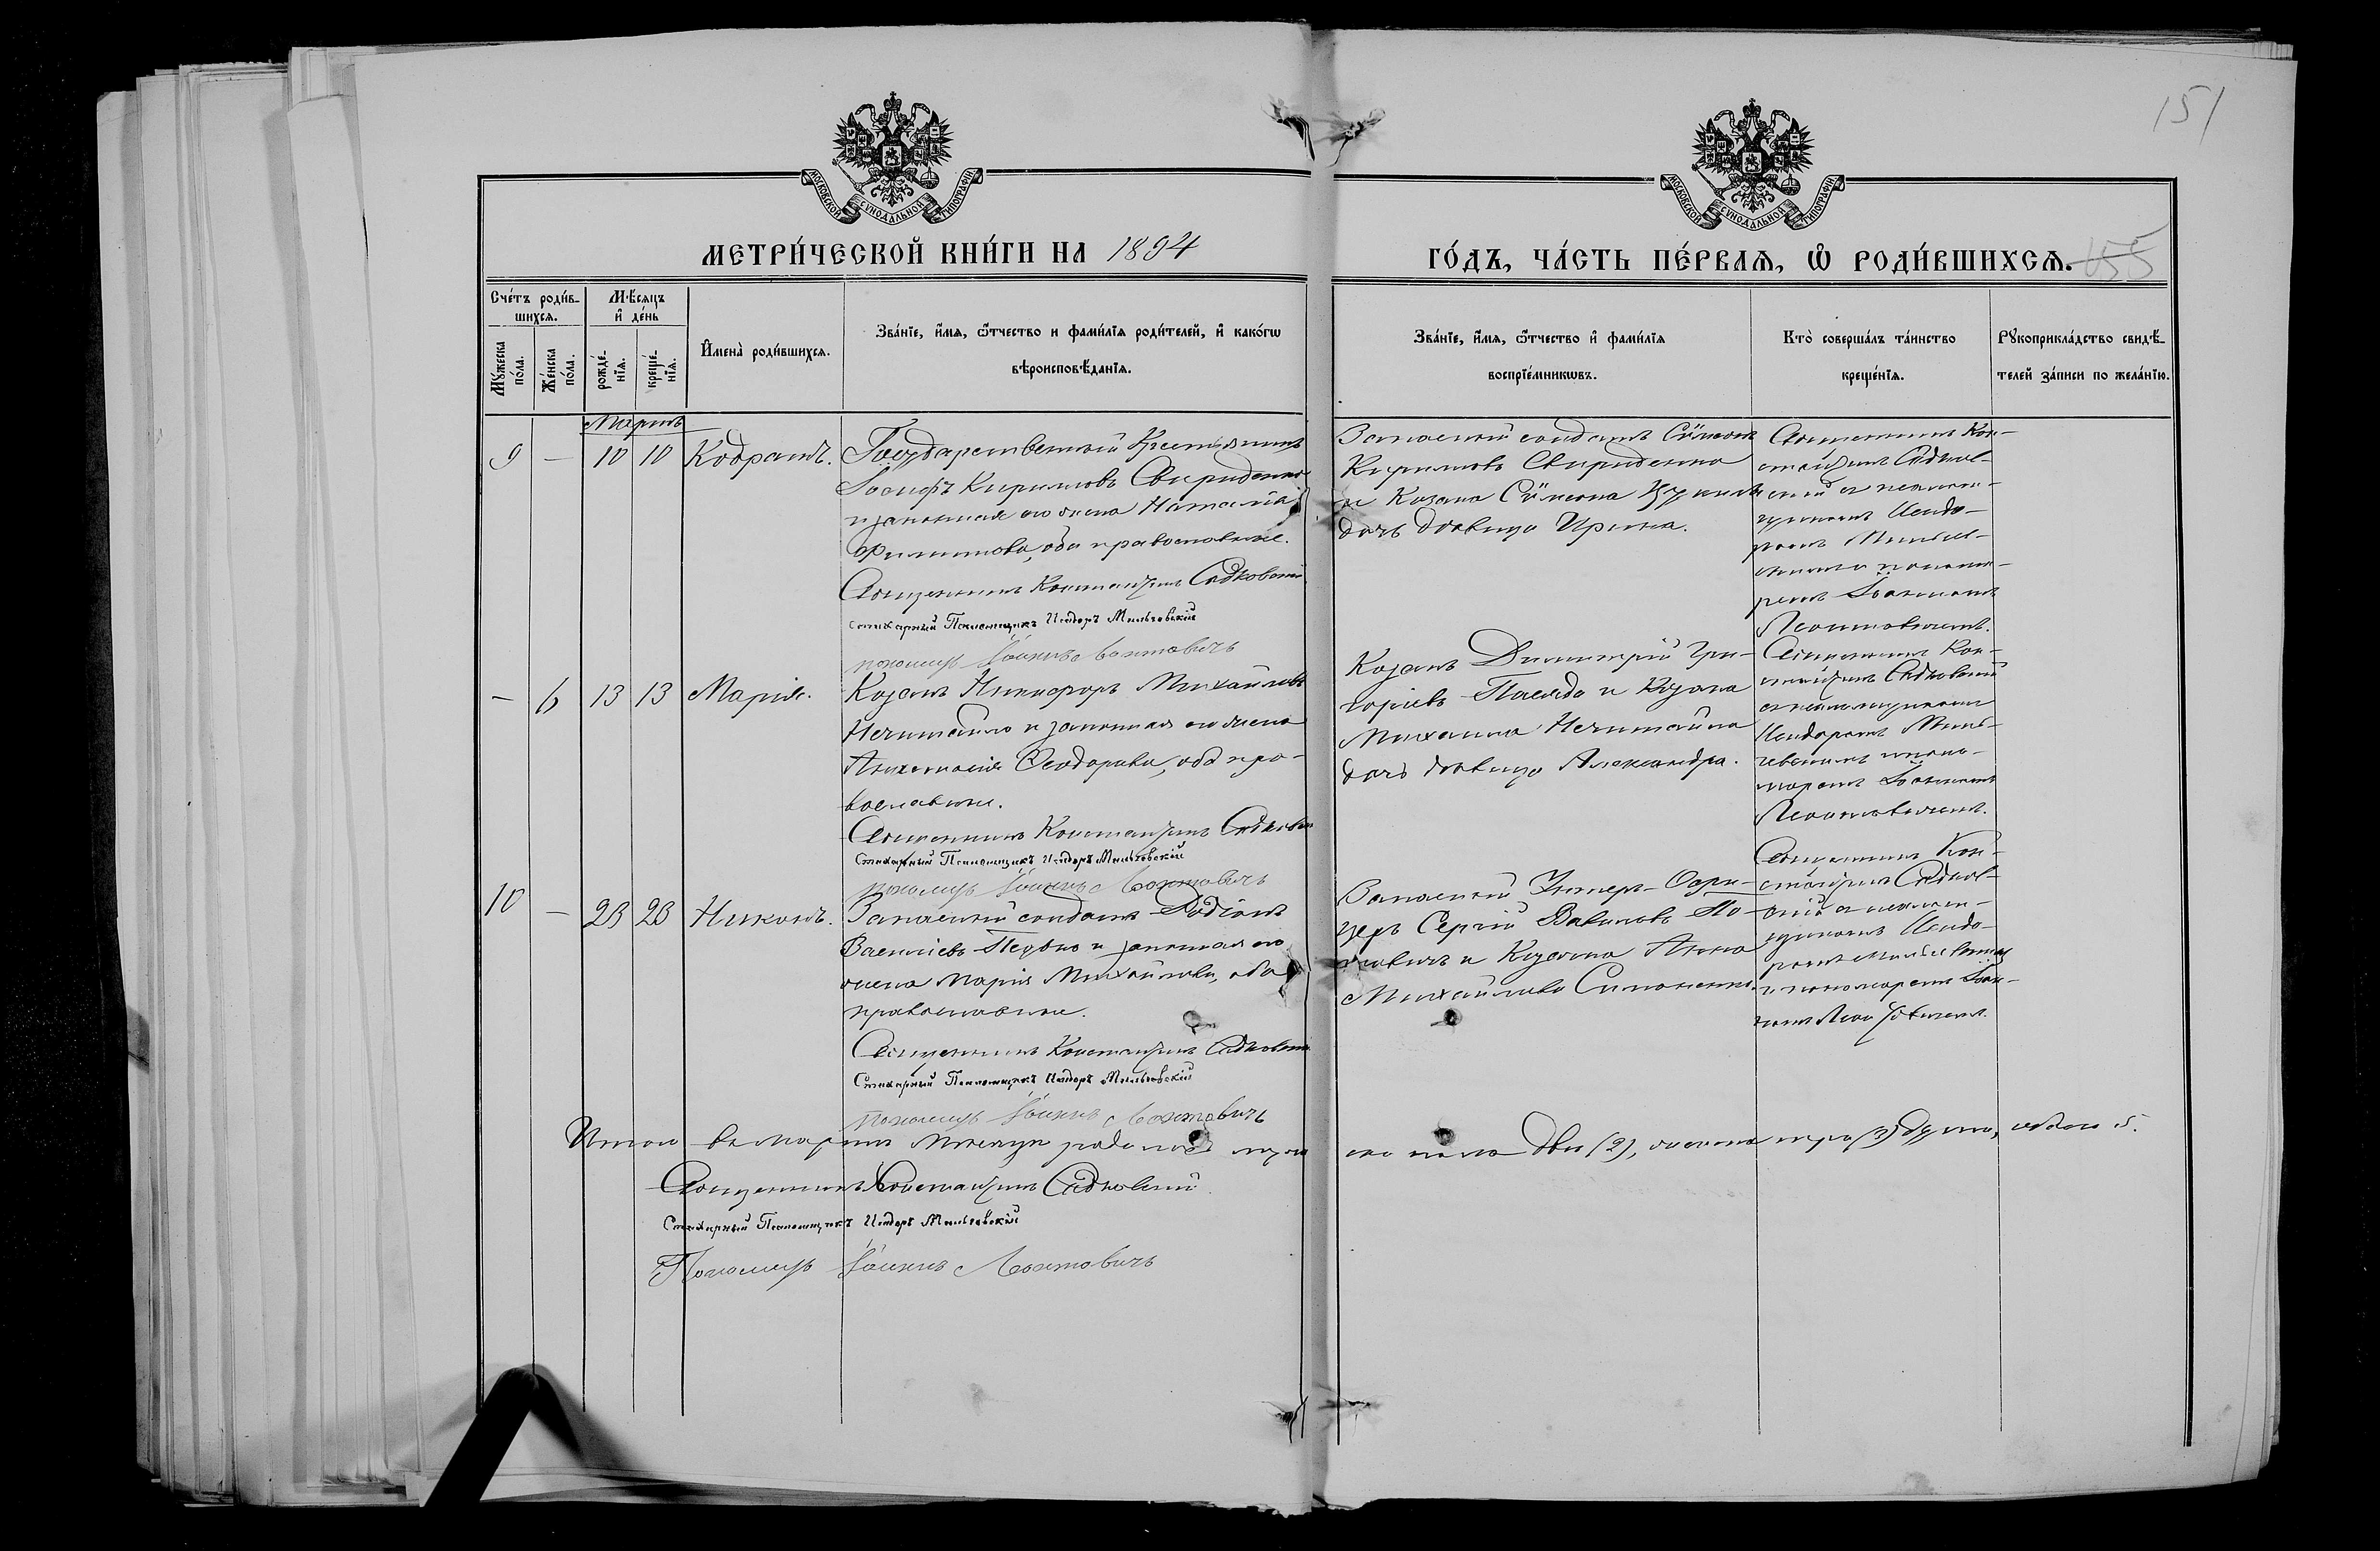 151
МОСКОВСКОЙ СѴНОДАЛЬНОЙ ТИПОГРАФІИ
МОСКОВСКОЙ СѴНОДАЛЬНОЙ ТИПОГРАФІИ
МЕТРИ́ЧЕСКОЙ КНИ́ГИ НА 1894
ГО́ДЪ, ЧА́СТЬ ПЕ́РВАЯ, Ѡ РОДИ́ВШИХСЯ. 155
Сче́тъ роди́в-
шихся.
Мꙋ́жеска
по́ла.
Же́нска
по́ла.
Мѣ́сяцъ
и де́нь
рожде́-
нїя.
креще́-
нїя.
Имена̀ роди́вшихся.
Зва́нїе, и́мя, ѻ́тчество и фами́лїя роди́телей, и како́гѡ
вѣроисповѣ́данїя.
Зва́нїе, и́мя, ѻ́тчество и фами́лїя
воспрїе́мникѡвъ.
Кто̀ соверша́лъ та́инство
креще́нїя.
Рꙋкоприкла́дство свидѣ́-
телей за́писи по жела́нїю.
Мартъ
9 — 10 10 Кодратъ.
Государственный Крестьянинъ
Іосифъ Кирилловъ Свириденко
и законная его жена Наталія
Филиппова, оба православные.
Священникъ Константинъ Садковскій
Стихарный Псаломщикъ Исидоръ Мильчевскій
пономарь Іоаннъ Леонтовичъ
Запасный солдатъ Сѵмеонъ
Кирилловъ Свириденко
и Козака Сѵмеона
дочь девица Ирина.
Священникъ Кон-
стантинъ Садков-
скій съ псалом-
щикомъ Исидо-
ромъ Мильчев-
скимъ и понома-
ремъ Іоанномъ
Леонтовичемъ.
— 6 13 13 Марія.
Козакъ Никифоръ Михайловъ
Нечитайло и законная его жена
Анастасія Ѳеодорова, оба пра-
вославные.
Священникъ Константинъ Садковскій
Стихарный Псаломщикъ Исидоръ Мильчевскій
пономарь Іоаннъ Леонтовичъ
Козакъ Димитрій Гри-
горіевъ и Козака
Михаила Нечитайла
дочь девица Александра.
Священникъ Кон-
стантинъ Садковскій
съ псаломщикомъ
Исидоромъ Миль-
чевскимъ и поно-
маремъ Іоанномъ
Леонтовичемъ.
10 — 23 23 Никонъ.
Запасный солдатъ Родіонъ
Василіевъ и законная его
жена Марія Михайлова, оба
православные.
Священникъ Константинъ Садковскій
Стихарный Псаломщикъ Исидоръ Мильчевскій
пономарь Іоаннъ Леонтовичъ
Запасный Унтеръ-Офи-
церъ Сергій Вавиловъ
и Козачка Анна
Михайлова Симоненко.
Священникъ Кон-
стантинъ Садков-
скій съ псалом-
щикомъ Исидо-
ромъ Мильчевскимъ
и пономаремъ Іоан-
номъ Леонтовичемъ.
Итого въ мартѣ месяце родилось муже-
ска пола два (2), женска три (3) душъ, обоего 5.
Священникъ Константинъ Садковскій.
Стихарный Псаломщикъ Исидоръ Мильчевскій
Пономарь Іоаннъ Леонтовичъ